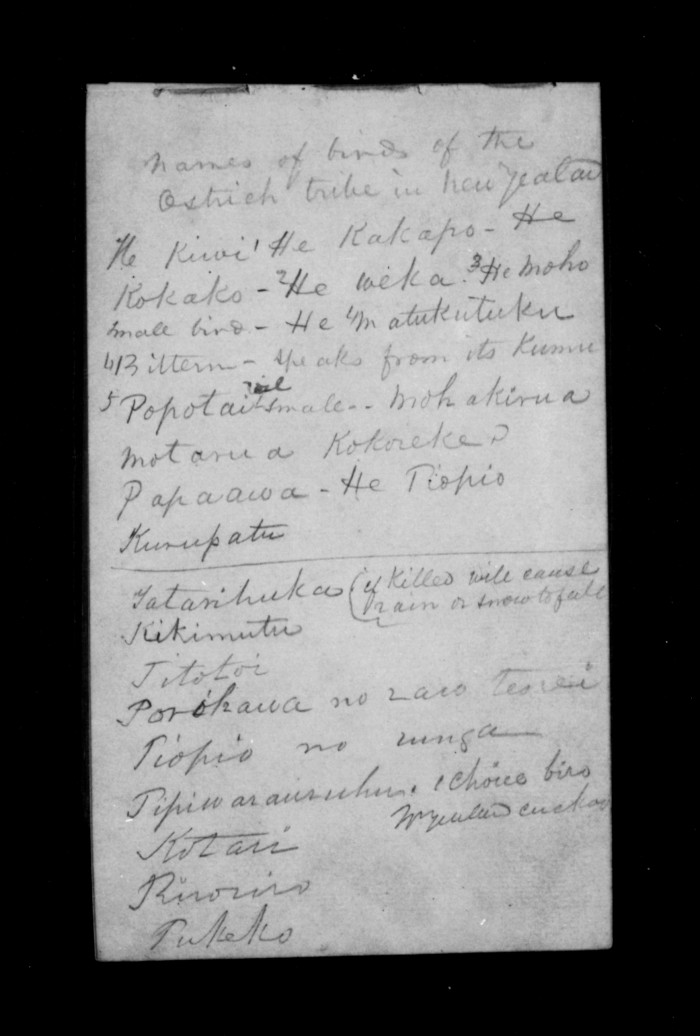 names of birds of the
Ostrich tribe in new Zealand
He Kiwi 1 He Kakapo - He
Kokako - 2 He weka. 3 He Moho
small bird - He 4 Matukutuku
4 Bittern - speaks from its Kumu
5 Popotai rail small -- Mohakirua
motarua Kokoreke?
Papaawa - He Tiopio
Kurupatu
Tatarihuka (if killed will cause
rain or snow to fall
Kikimutu
Titotoi
Porokawa no raro
Tiopio no runga
choice bird
nw zealand cuckoo
Kotari
Riroriro
Pukeko